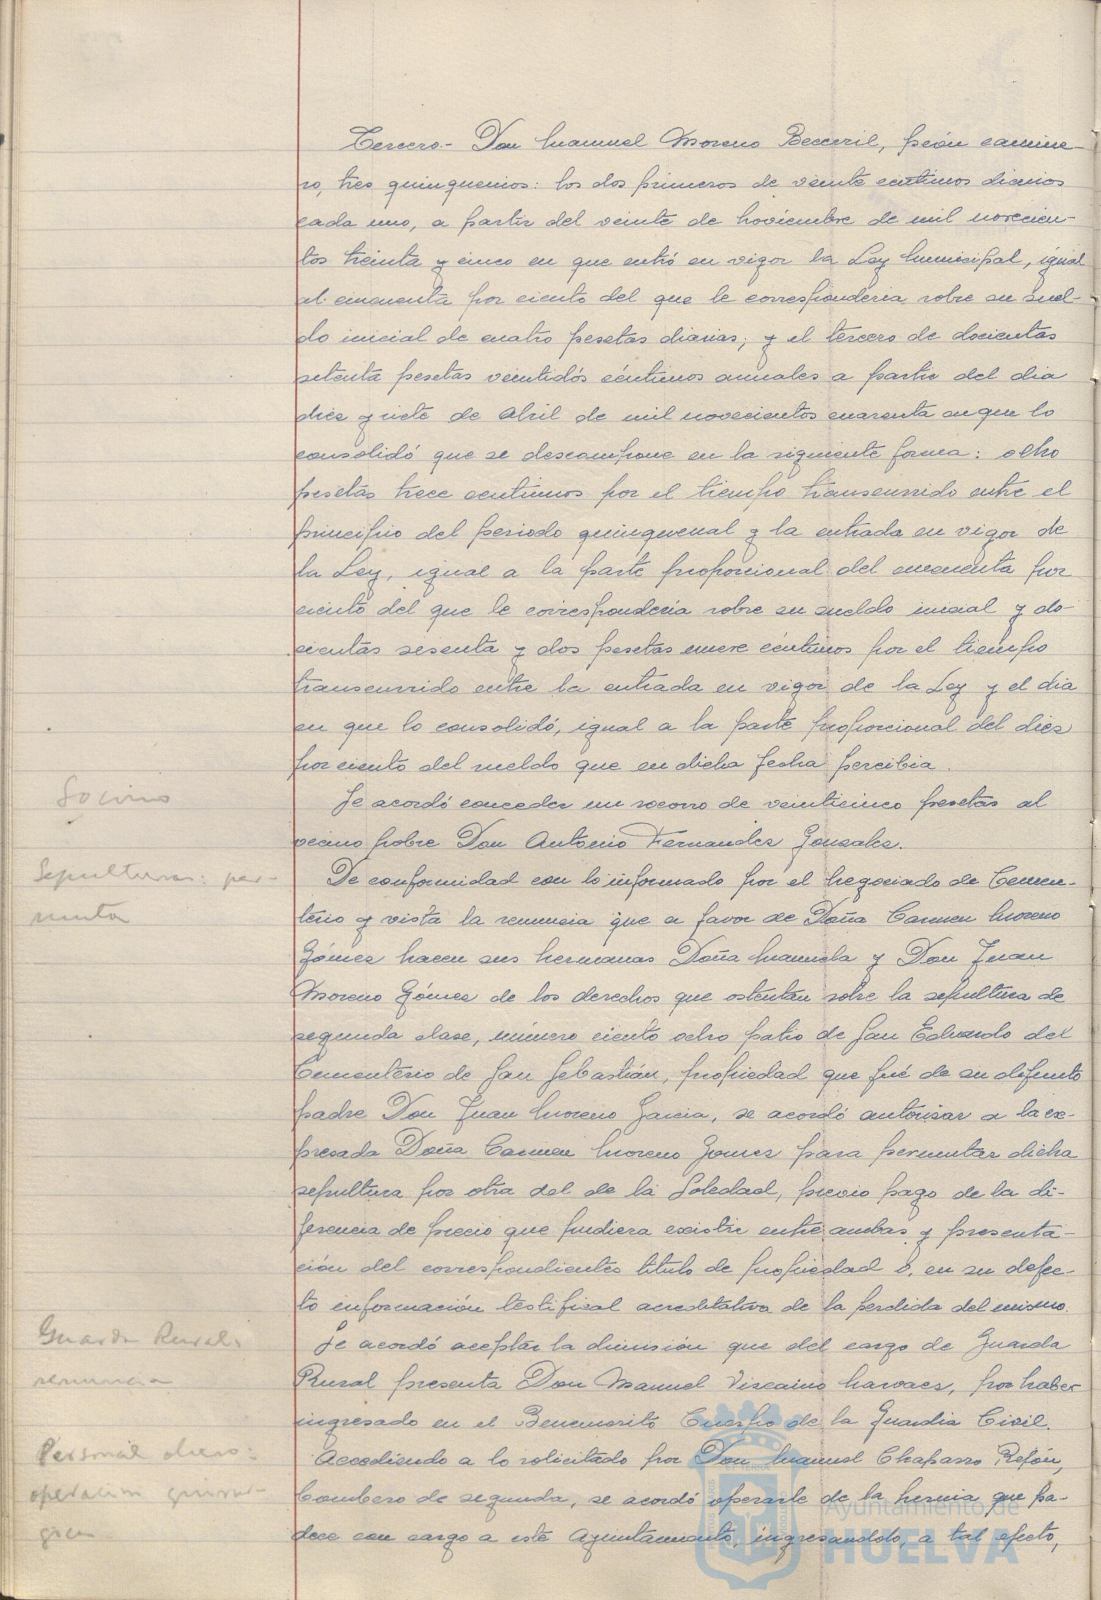 Tercero.- Don Manuel Moreno Becerril, peón camine-
ro, tres quinquenios: los dos primeros de veinte centimos diarios
cada uno, a partir del veinte de Noviembre de mil novecien-
tos treinta y cinco en que entró en vigor la Ley Municipal, igual
al cincuenta por ciento del que le corresponderia sobre su suel-
do inicial de cuatro pesetas diarias; y el tercero de docientas
setenta pesetas veintidós céntimos anuales a partir del dia
diez y siete de Abril de mil novecientos cuarenta en que lo
consolidó que se descompone en la siguiente forma: ocho
pesetas trece centimos por el tiempo transcurrido entre el
principio del periodo quinquenal y la entrada en vigor de
la Ley, igual a la parte proporcional del cincuenta por
ciento del que le correspondería sobre su sueldo inicial y do-
cientas sesenta y dos pesetas nueve céntimos por el tiempo
transcurrido entre la entrada en vigor de la Ley y el dia
en que lo consolidó, igual a la parte proporcional del diez
por ciento del sueldo que en dicha fecha percibia.
Socorro
Se acordó conceder un socorro de veinticinco pesetas al
vecino pobre Don Antonio Fernandez Gonzalez.
Sepulturas: per-
muta
De conformidad con lo informado por el Negociado de Cemen-
terio y vista la renuncia que a favor de Doña Carmen Moreno
Gómez hacen sus hermanas Doña Manuela y Don Juan
Moreno Gómez de los derechos que ostentan sobre la sepultura de
segunda clase, número ciento ocho patio de San Eduardo del
Cementerio de San Sebastián, propiedad que fué de su difunto
padre Don Juan Moreno Garcia, se acordó autorizar a la ex-
presada Doña Carmen Moreno Gomez para permutar dicha
sepultura por otra del de la Soledad, previo pago de la di-
ferencia de precio que pudiera existir entre ambas y presenta-
ción del correspondientes titulo de propiedad ó, en su defec-
to información testifical acreditativa de la perdida del mismo.
Guarda Rural:
renuncia
Se acordó aceptar la dimisión que del cargo de Guarda
Rural presenta Don Manuel Vizcaino Narvaez, por haber
ingresado en el Benemerito Cuerpo de la Guardia Civil.
Personal obrero:
operación quirur-
gica
Accediendo a lo solicitado por Don Manuel Chaparro Refón,
bombero de segunda, se acordó operarle de la hernia que pa-
dece con cargo a este Ayuntamiento, ingresandolo, a tal efecto,
Ayuntamiento de
HUELVA